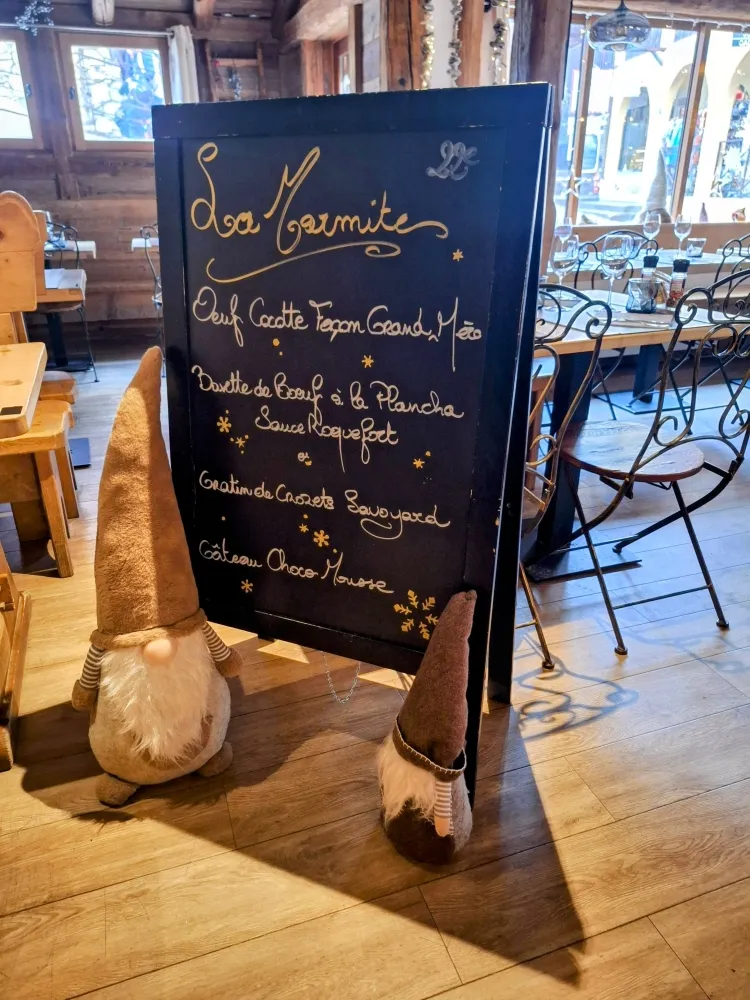 22€
La Marmite
Oeuf Cocotte Façon Grand Mère
Bavette de Boeuf à la Plancha
Sauce Roquefort
et
Gratin de Crozets Savoyard
Gâteau Choco Mousse